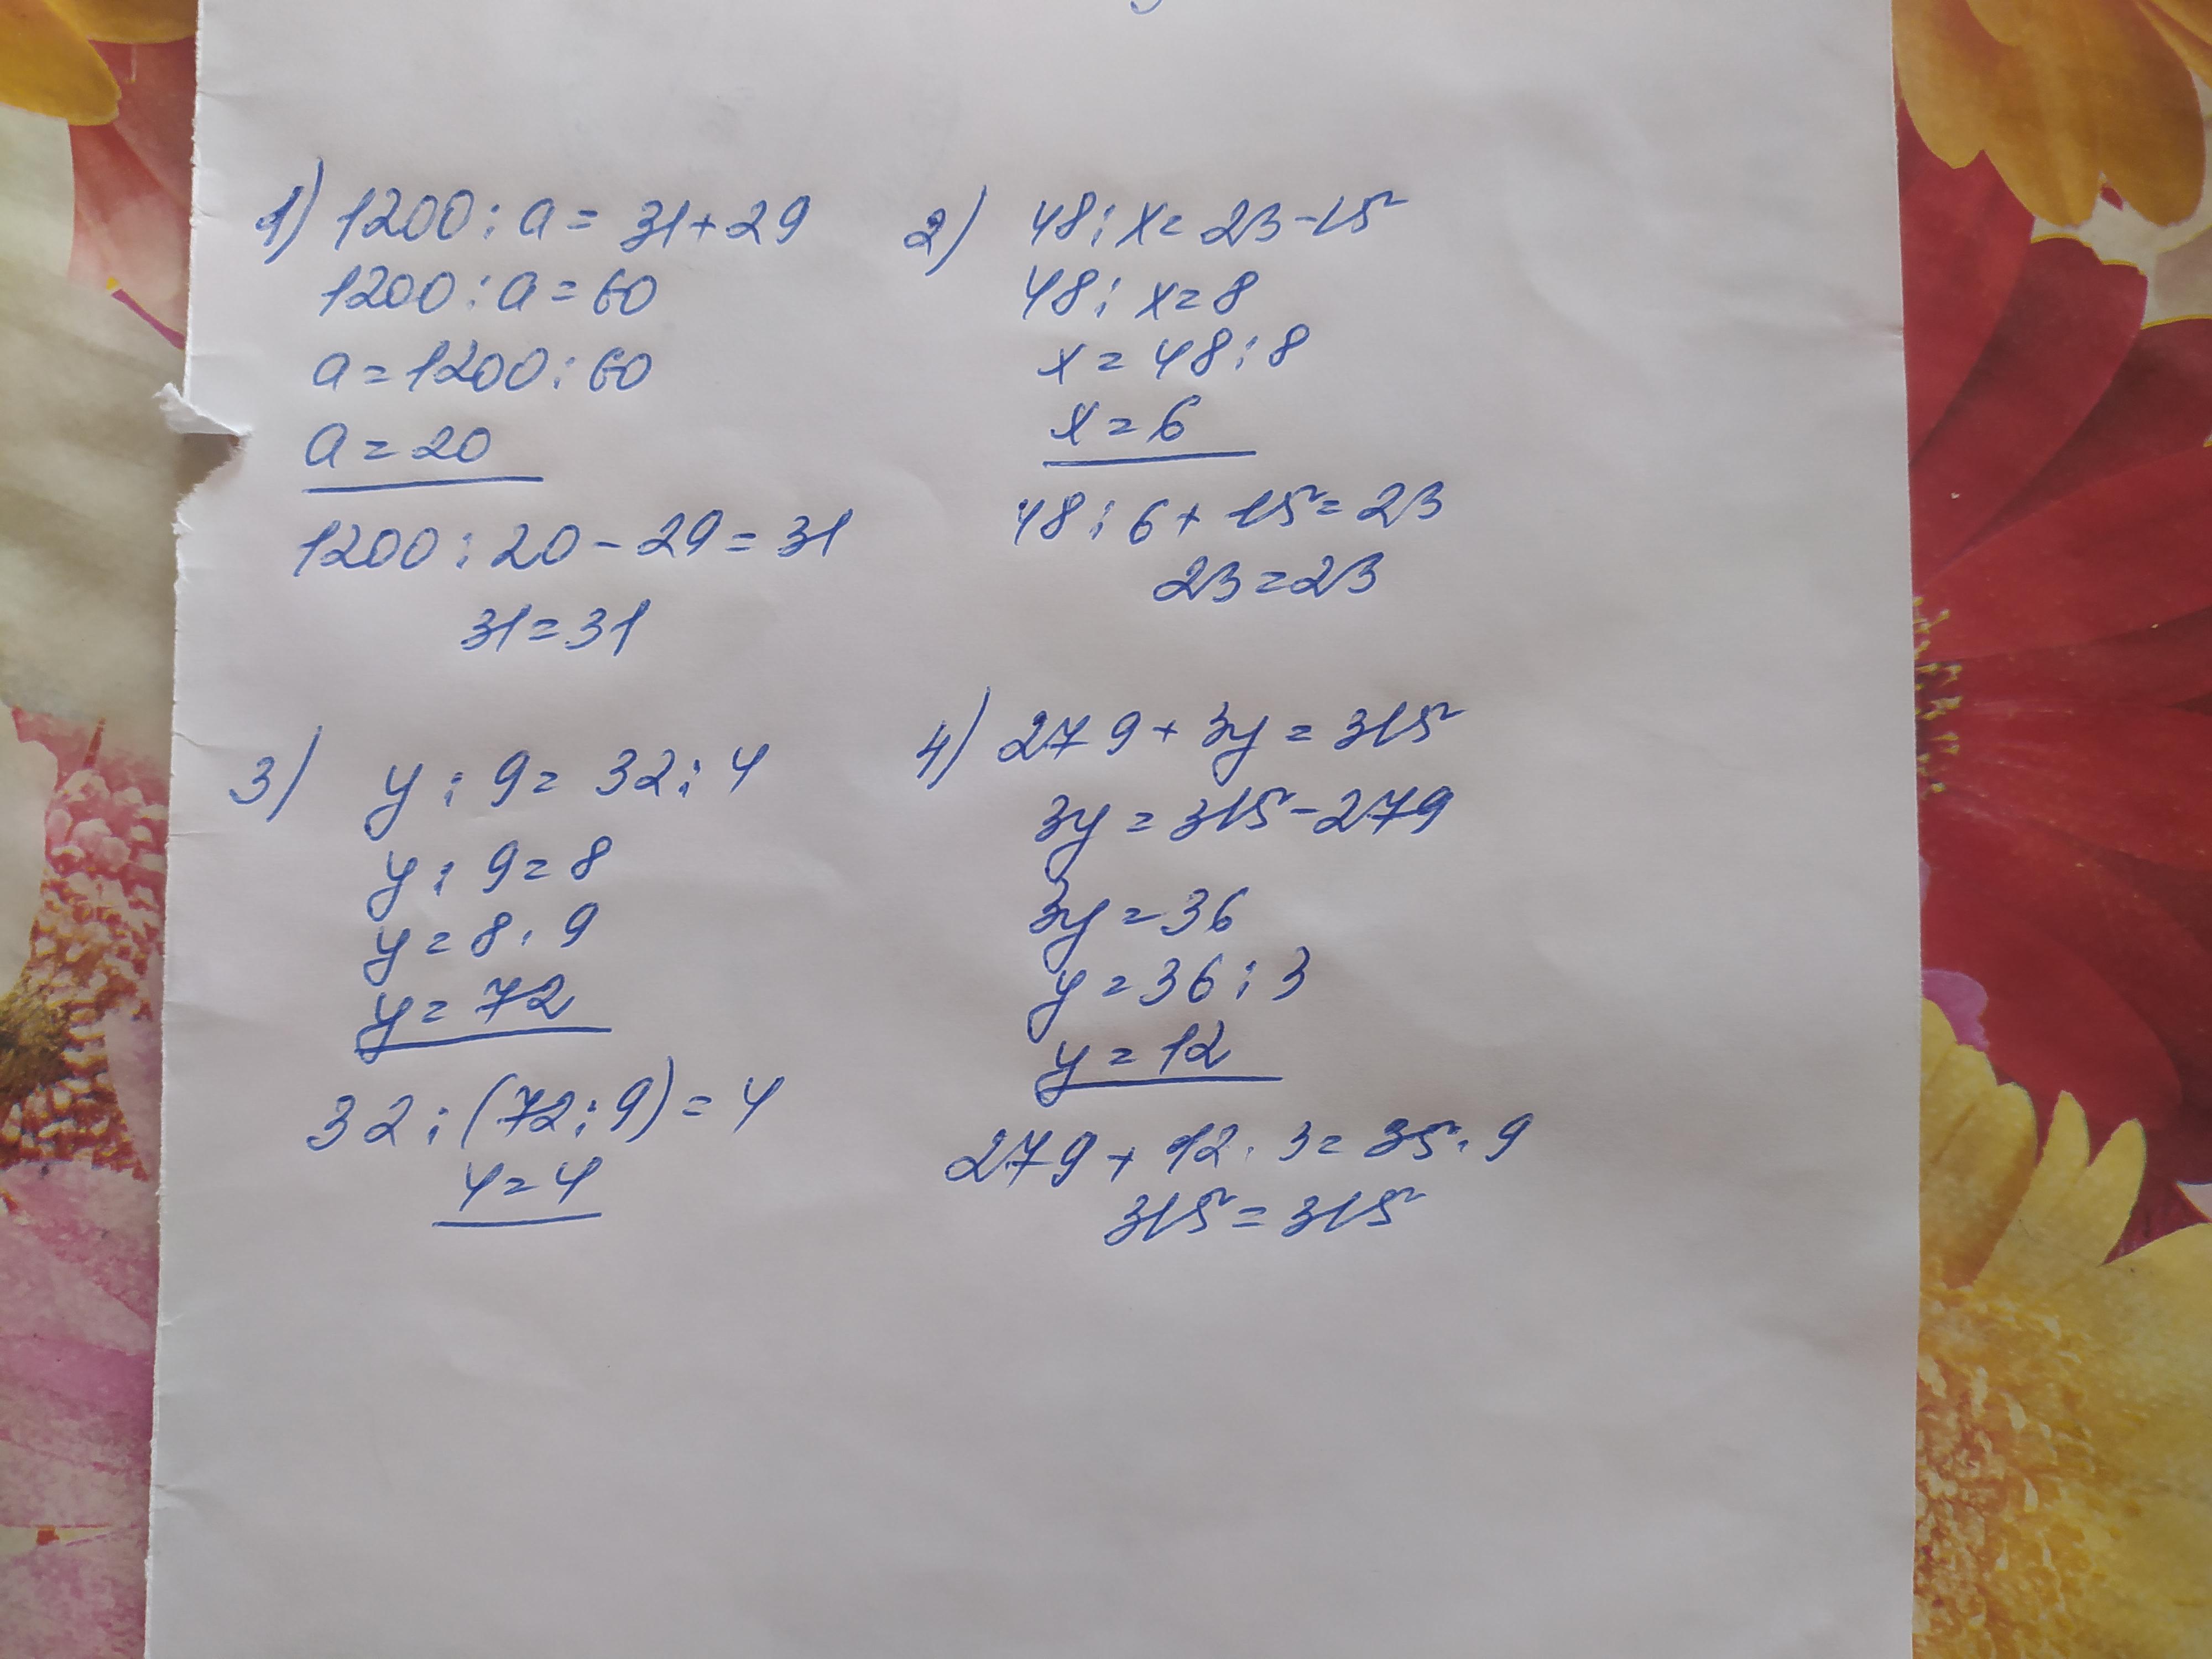 1) 1200 : a = 31 + 29
1200 : a = 60
a = 1200 : 60
a = 20
1200 : 20 - 29 = 31
31 = 31
2) 48 : x = 23 - 15
48 : x = 8
x = 48 : 8
x = 6
48 : 6 + 15 = 23
23 = 23
3) y : 9 = 32 : 4
y : 9 = 8
y = 8 · 9
y = 72
32 : (72 : 9) = 4
4 = 4
4) 279 + 3y = 315
3y = 315 - 279
3y = 36
y = 36 : 3
y = 12
279 + 12 · 3 = 35 · 9
315 = 315